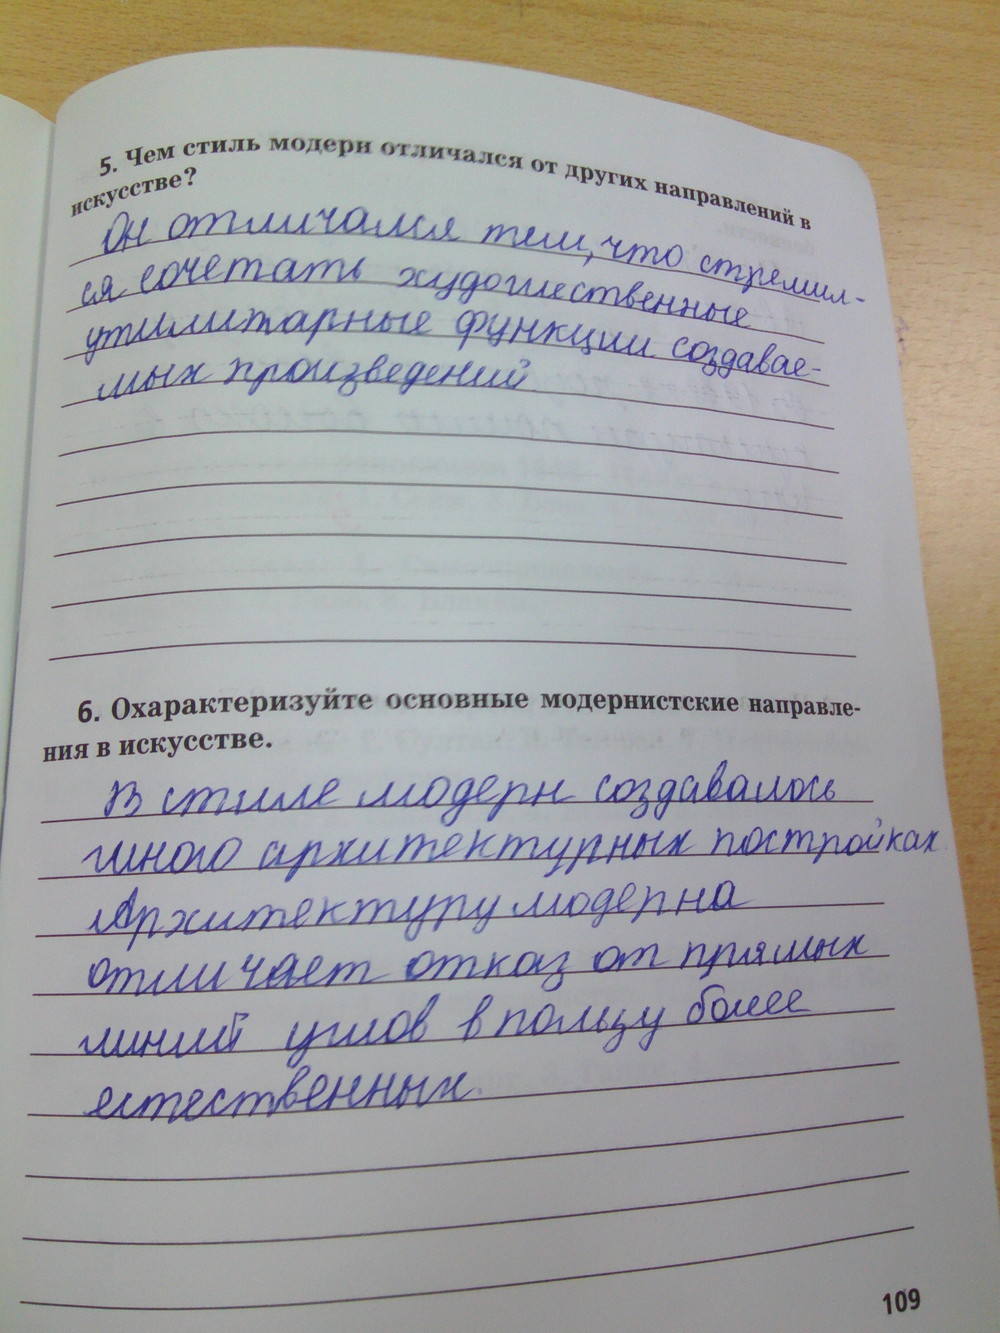 5. Чем стиль модерн отличался от других направлений в
искусстве?
Он отличался тем, что стремил-
ся сочетать художественные
утилитарные функции создавае-
мых произведений
6. Охарактеризуйте основные модернистские направле-
ния в искусстве.
В стиле модерн создавалось
много архитектурных постройках
Архитектуру модерна
отличает отказ от прямых
линий углов в пользу более
естественных.
109